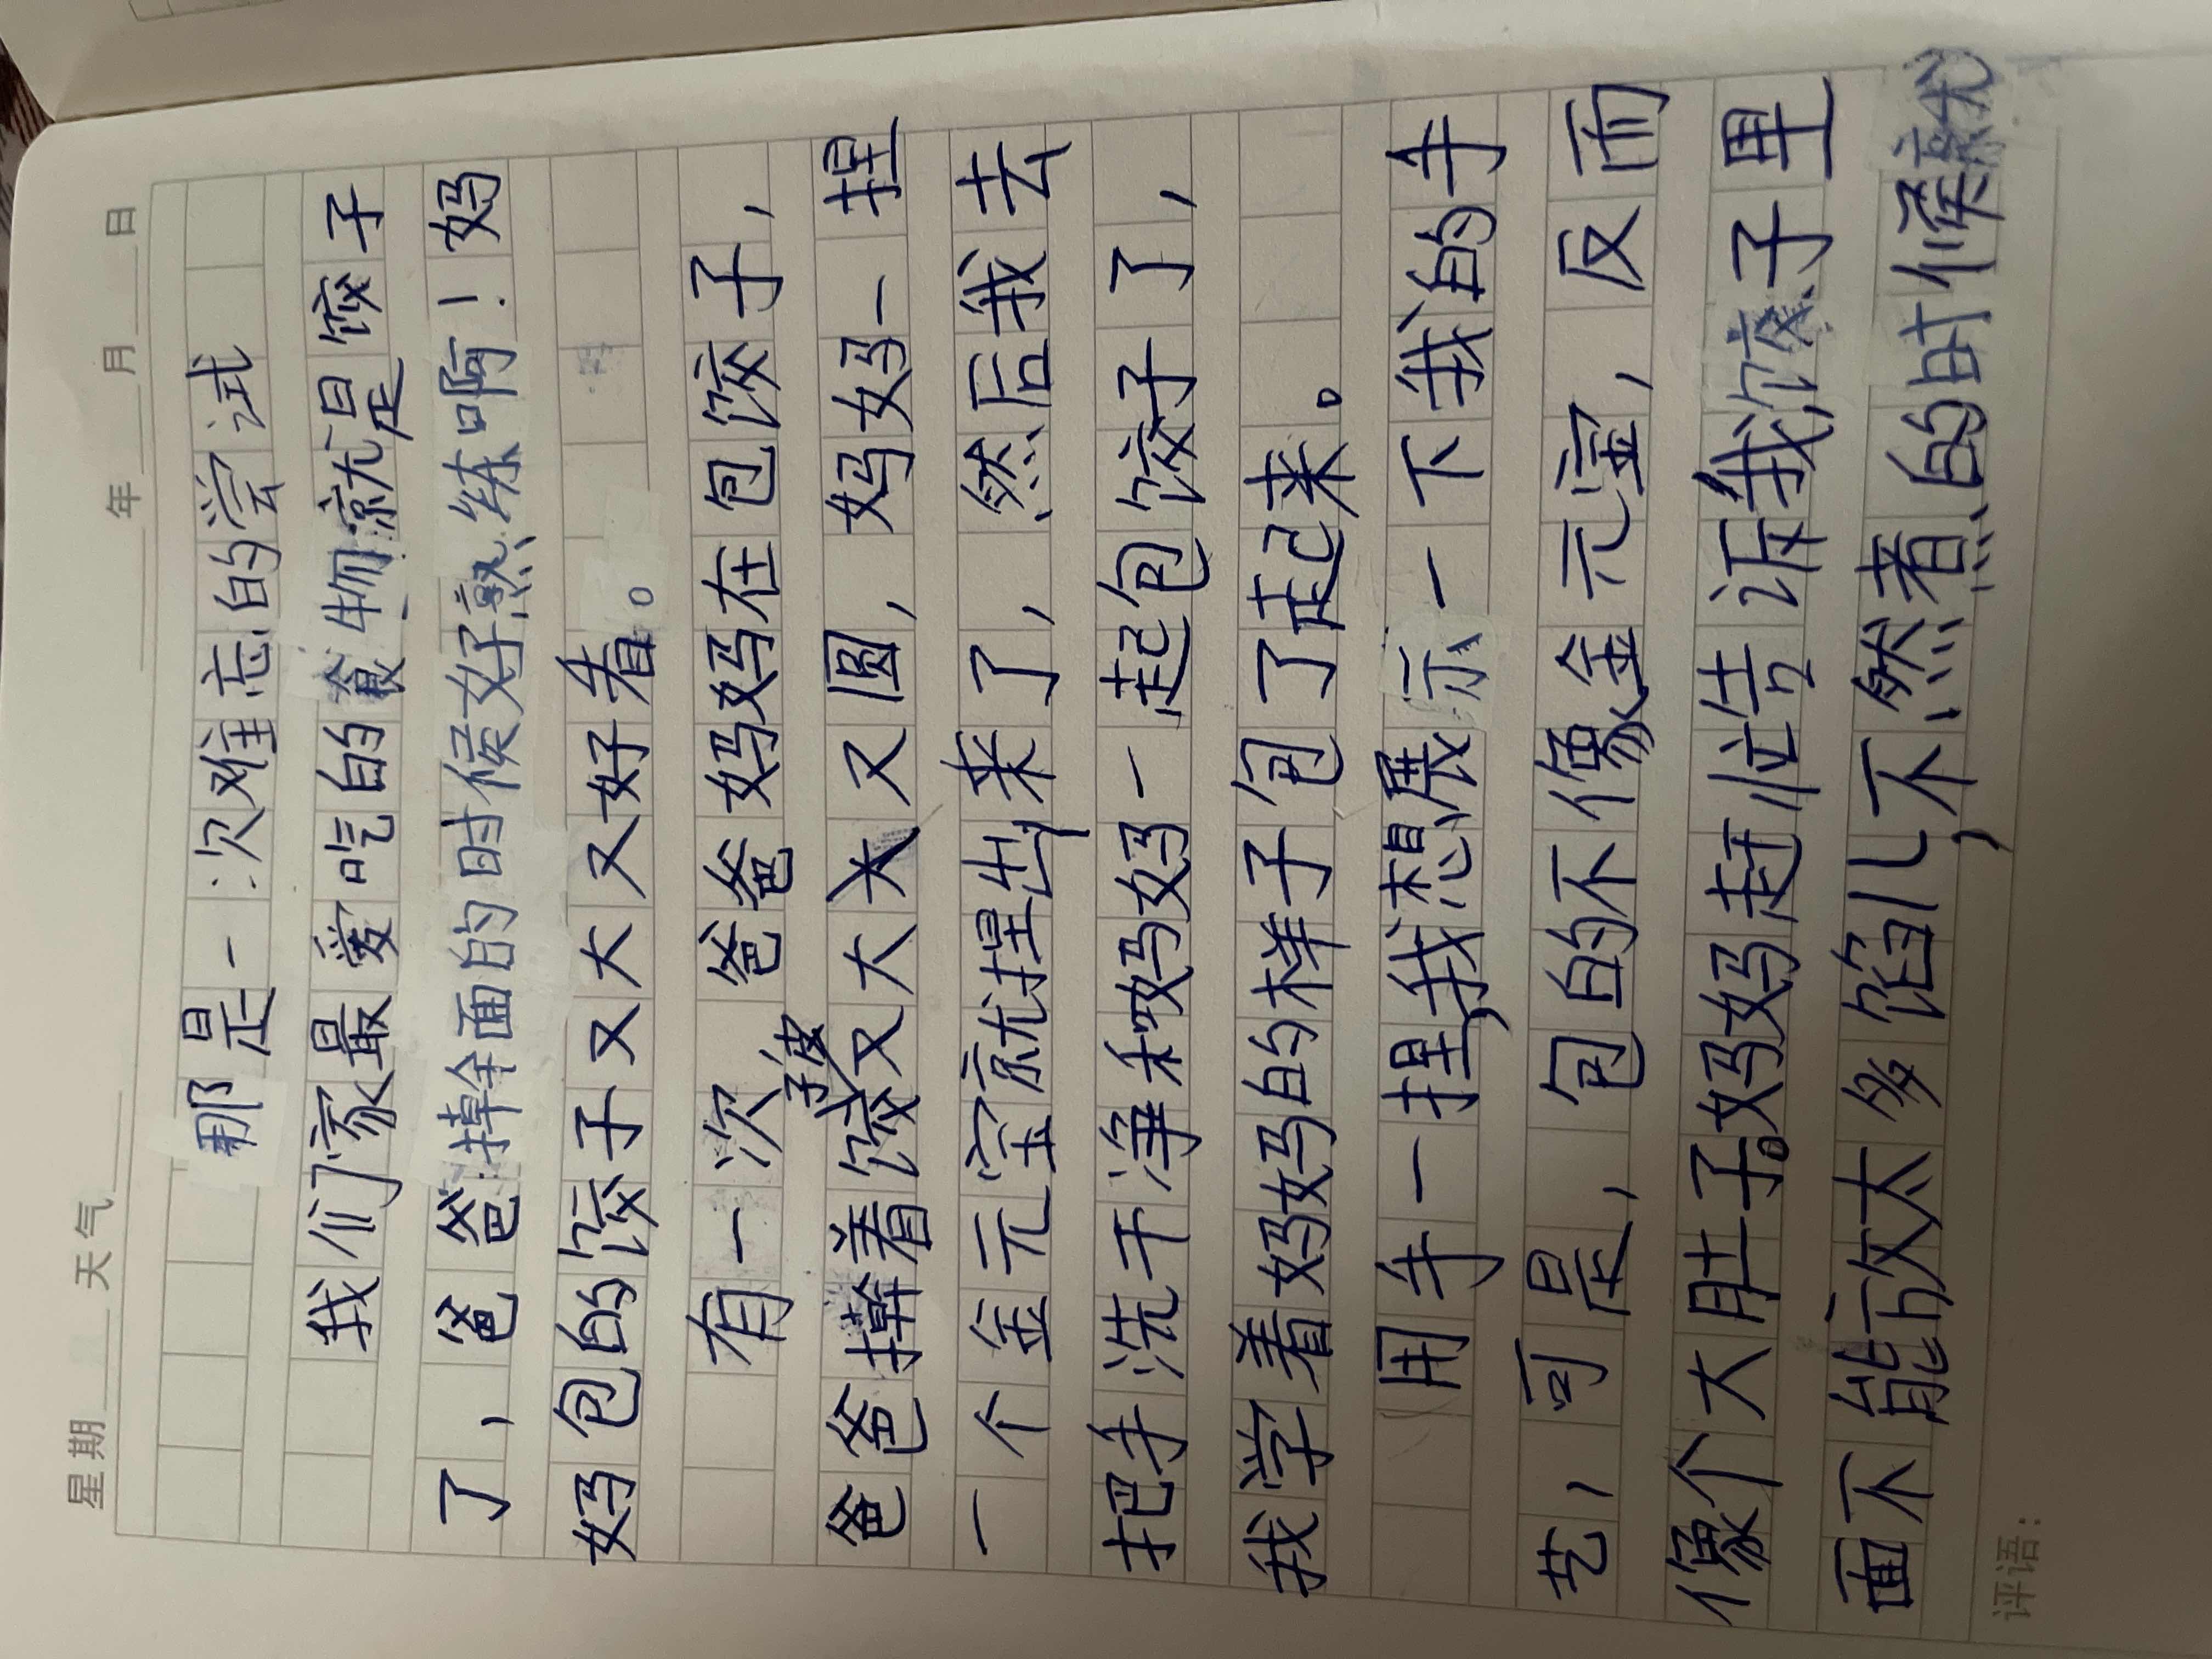 星期 天气 年 月 日
那是一次难忘的尝试
我们家最爱吃的食物就是饺子
了，爸爸擀面的时候好熟练啊！妈
妈包的饺子又大又好看。
有一次爸爸妈妈在包饺子，
爸爸擀着饺子皮又大又圆，妈妈一捏
一个金元宝就捏出来了，然后我去
把手洗干净和妈妈一起包饺子了，
我学着妈妈的样子包了起来。
用手一捏，我想展示一下我的手
艺，可是，包的不像金元宝，反而
像个大肚子。妈妈赶忙告诉我，饺子里
面不能放太多馅儿，不然煮的时候就
评语：